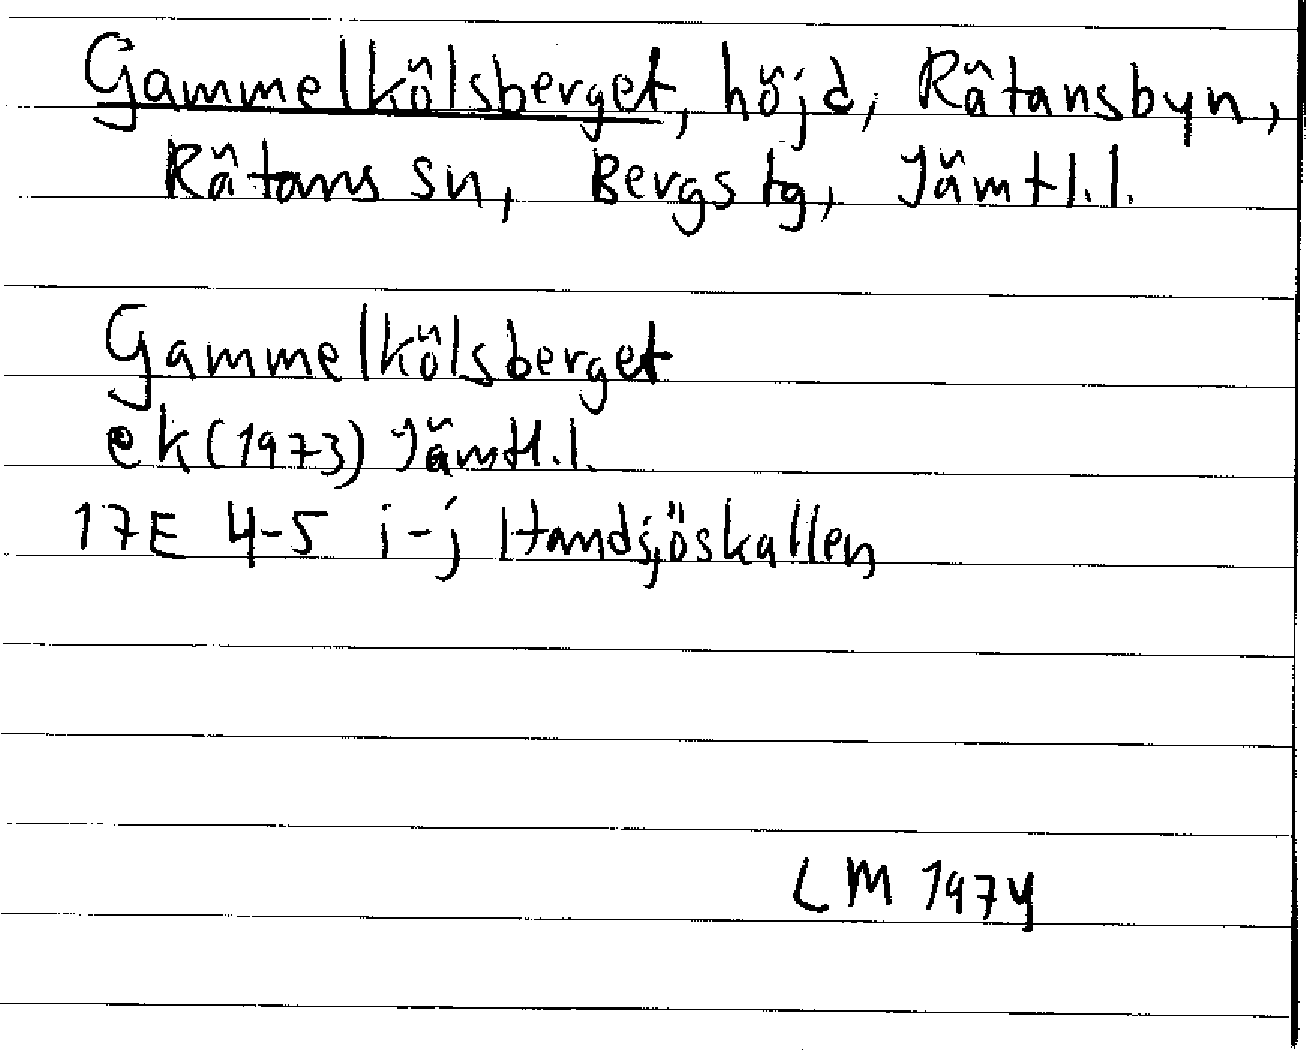 Gammelkölsberget, höjd, Rätansbyn,
Rätans sn, Bergs tg, Jämtl.l.
Gammelkölsberget
ek (1973) Jämtl.l.
17E 4-5 i-j Handsjöskallen
LM 1974